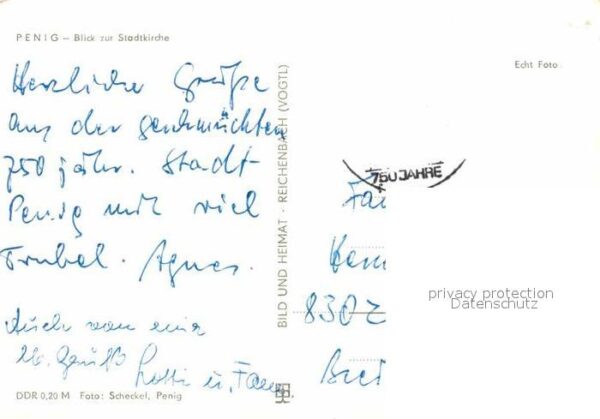 PENIG – Blick zur Stadtkirche
Herzliche Grüße
aus der geschmückten
750 jähr. Stadt-
Penig mit viel
Trubel. Agnes.
Auch von mir
Lotti u. Fam
DDR 0,20 M Foto: Scheckel, Penig
BILD UND HEIMAT · REICHENBACH (VOGTL)
Echt Foto
750 JAHRE
Fam
830
privacy protection
Datenschutz